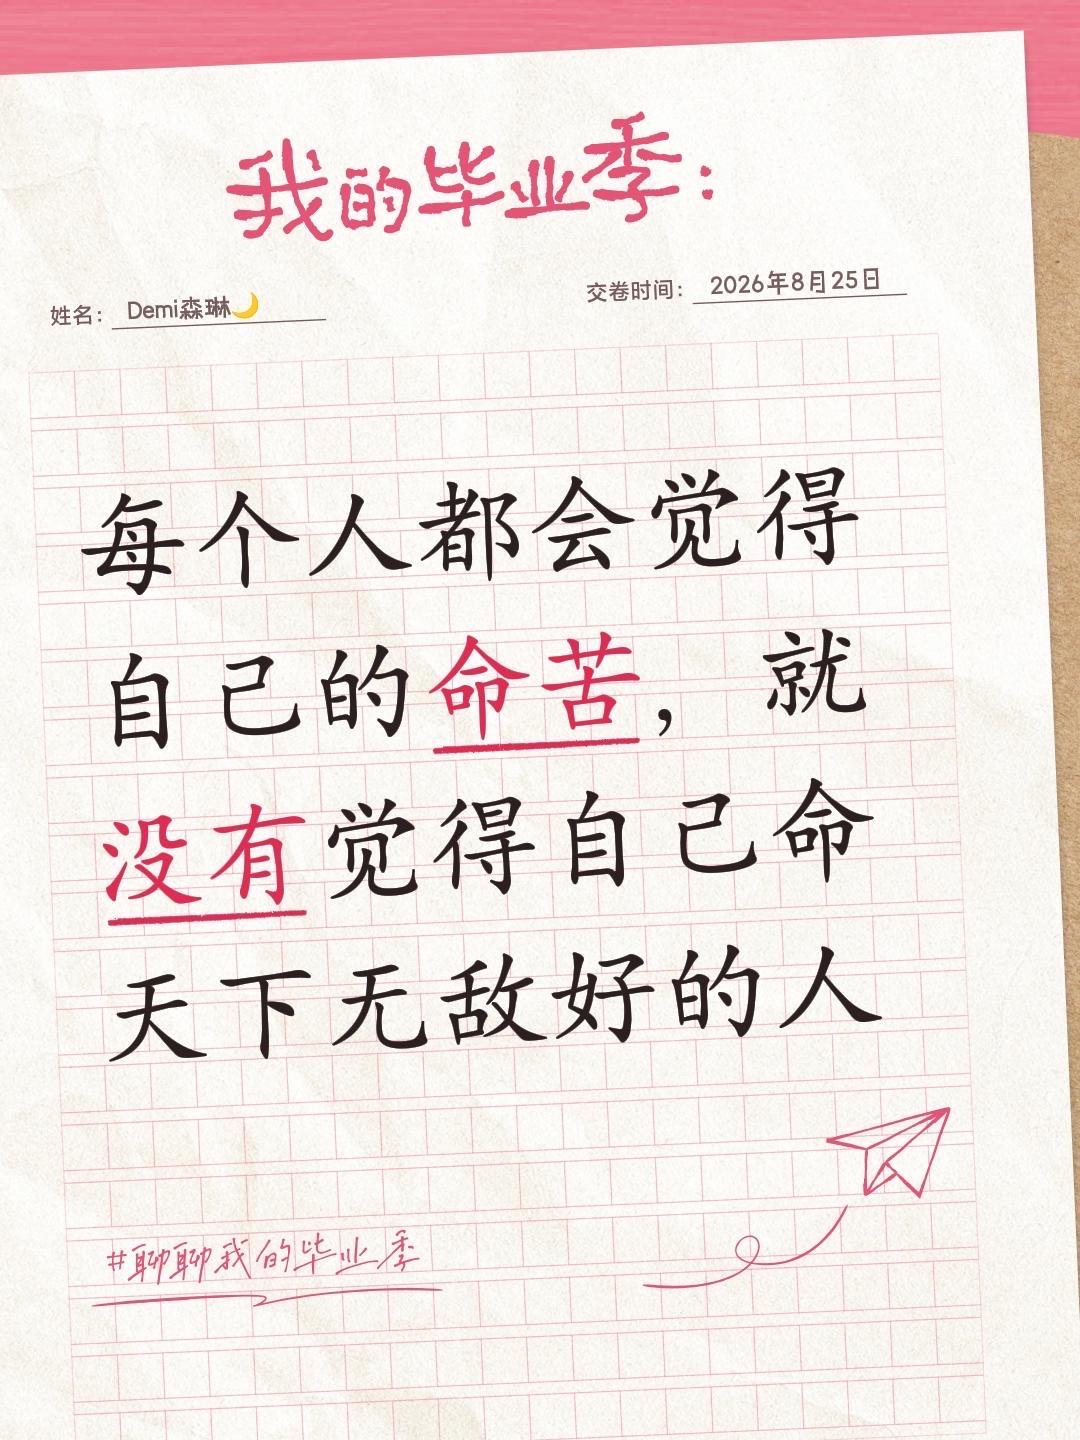 我的毕业季：
姓名：Demi森琳🌙
交卷时间：2026年8月25日
每个人都会觉得
自己的命苦，就
没有觉得自己命
天下无敌好的人
#聊聊我的毕业季